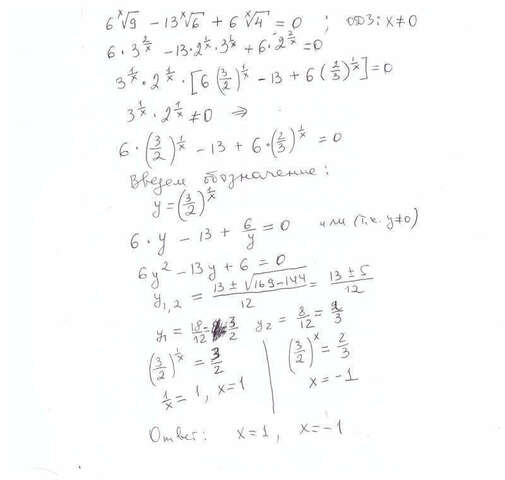 6 ˣ√9 − 13 ˣ√6 + 6 ˣ√4 = 0 ; ОДЗ: x≠0
6 · 3^(2/x) − 13 · 2^(1/x) · 3^(1/x) + 6 · 2^(2/x) = 0
3^(1/x) · 2^(1/x) · [6 (3/2)^(1/x) − 13 + 6 (2/3)^(1/x)] = 0
3^(1/x) · 2^(1/x) ≠ 0 ⇒
6 · (3/2)^(1/x) − 13 + 6 · (2/3)^(1/x) = 0
Введем обозначение:
y = (3/2)^(1/x)
6 · y − 13 + 6/y = 0 или (т.к. y≠0)
6y² − 13y + 6 = 0
y₁,₂ = (13 ± √(169−144))/12 = (13 ± 5)/12
y₁ = 18/12 = 3/2 y₂ = 8/12 = 2/3
(3/2)^(1/x) = 3/2 (3/2)^x = 2/3
1/x = 1, x=1 x = −1
Ответ: x=1, x=−1